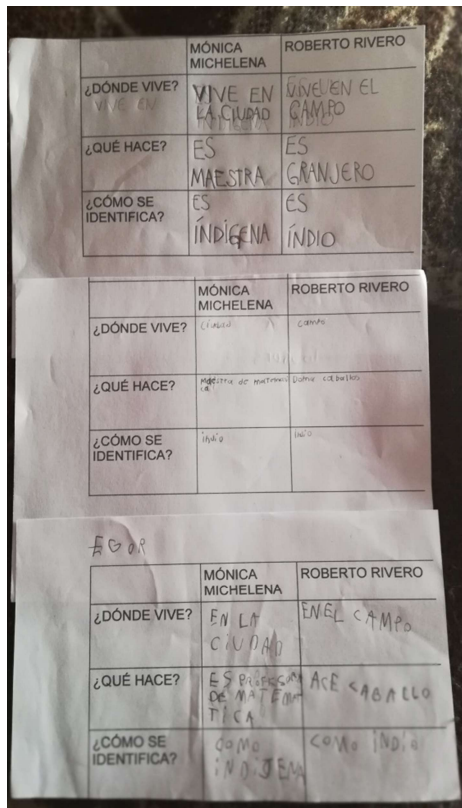 MÓNICA MICHELENA
ROBERTO RIVERO
¿DÓNDE VIVE?
VIVE EN
VIVE EN
LA CIUDAD
VIVE EN EL
CAMPO
¿QUÉ HACE?
ES
MAESTRA
ES
GRANJERO
¿CÓMO SE
IDENTIFICA?
ES
ÍNDIGENA
ES
ÍNDIO
MÓNICA
MICHELENA
ROBERTO RIVERO
¿DÓNDE VIVE?
ciudad
campo
¿QUÉ HACE?
Maestra de
Doma caballos
¿CÓMO SE
IDENTIFICA?
indio
indio
EGOR
MÓNICA
MICHELENA
ROBERTO RIVERO
¿DÓNDE VIVE?
EN LA
CIUDAD
EN EL CAMPO
¿QUÉ HACE?
ES PROFESORA
DE MATEMA
TICA
ACE CABALLO
¿CÓMO SE
IDENTIFICA?
COMO
INDIJENA
COMO INDIO